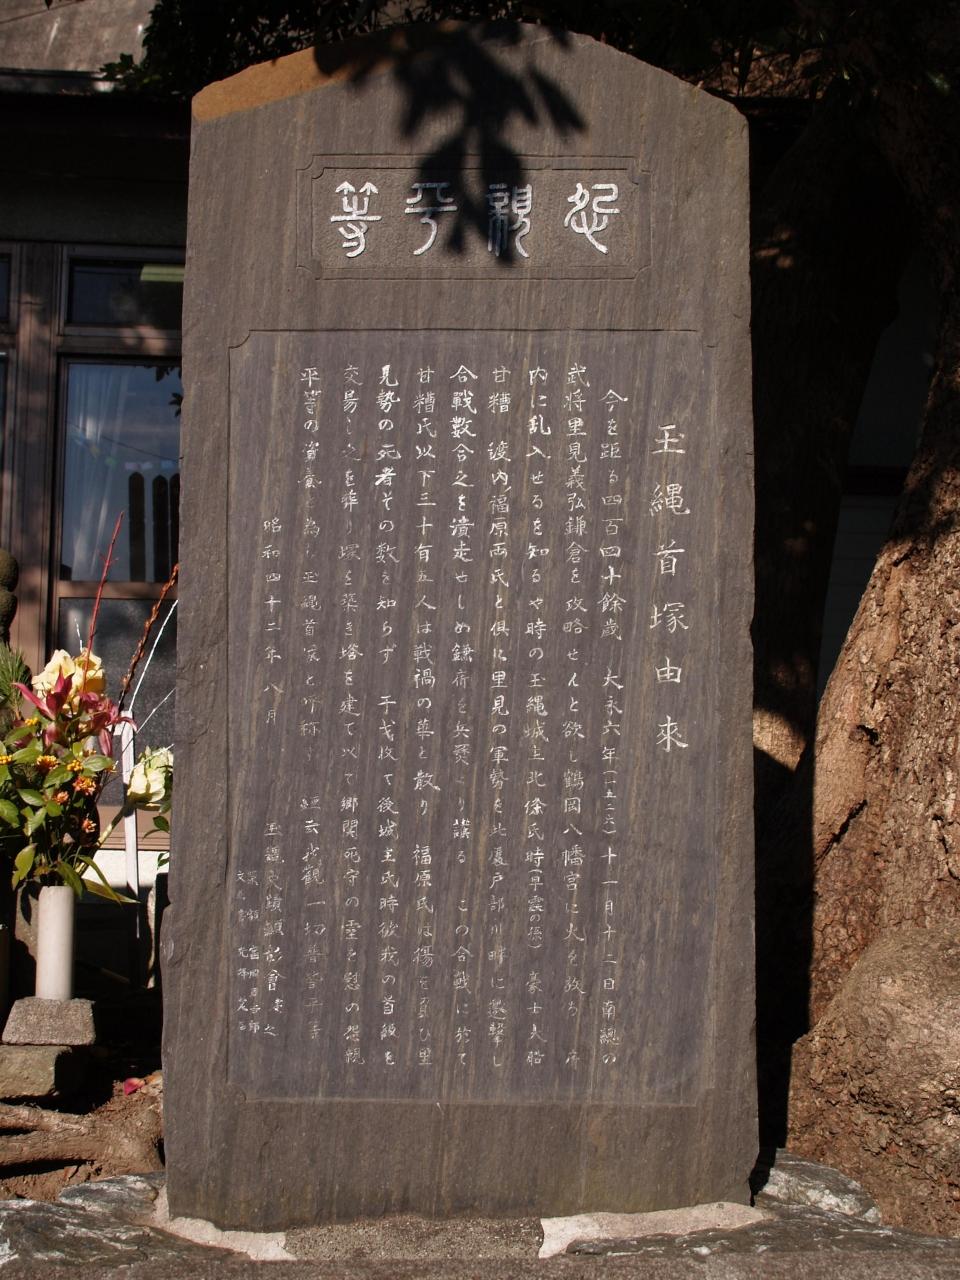 怨親平等
玉縄首塚由來
今を距る四百四十餘歳 大永六年(一五二六)十一月十二日南總の
武将里見義弘鎌倉を攻略せんと欲し鶴岡八幡宮に火を放ち 府
内に乱入せるを知るや時の玉縄城主北條氏時(早雲の孫) 豪士大船
甘糟 渡内福原両氏と俱に里見の軍勢を此處戸部川畔に邀撃し
合戰數合之を潰走せしめ鎌府を兵燹より護る この合戦に於て
甘糟氏以下三十有五人は戦禍の華と散り 福原氏は傷を負ひ里
見勢の死者その数を知らず 干戈收て後城主氏時彼我の首級を
交易し之を葬り塚を築き塔を建て以て郷関死守の霊を慰め怨親
平等の資養と為し玉縄首塚と呼称す 経云我觀一切普皆平等
昭和四十二年八月 玉縄史蹟顕彰會建之